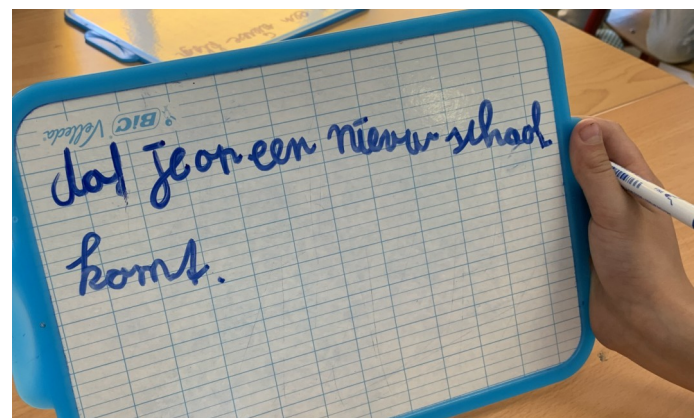 BIC Velleda
dat je op een nieuw school
komt.